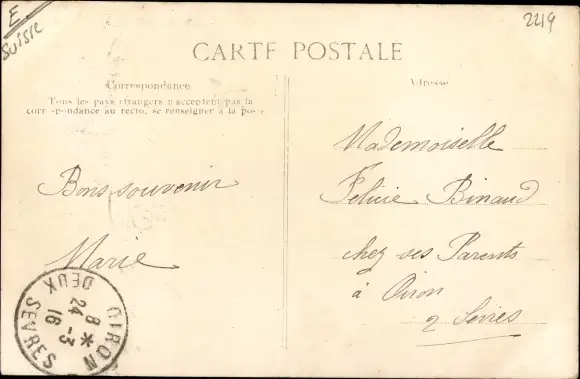 E.
Suisse
2219
CARTE POSTALE
Correspondance
Tous les pays étrangers n'acceptent pas la
correspondance au recto, se renseigner à la poste
Adresse
Bons souvenir
Marie
Mademoiselle
Felicie Binaud
chez ses Parents
à Oiron
2 Sevres
OIRON
8 * -3
24 16
DEUX SEVRES